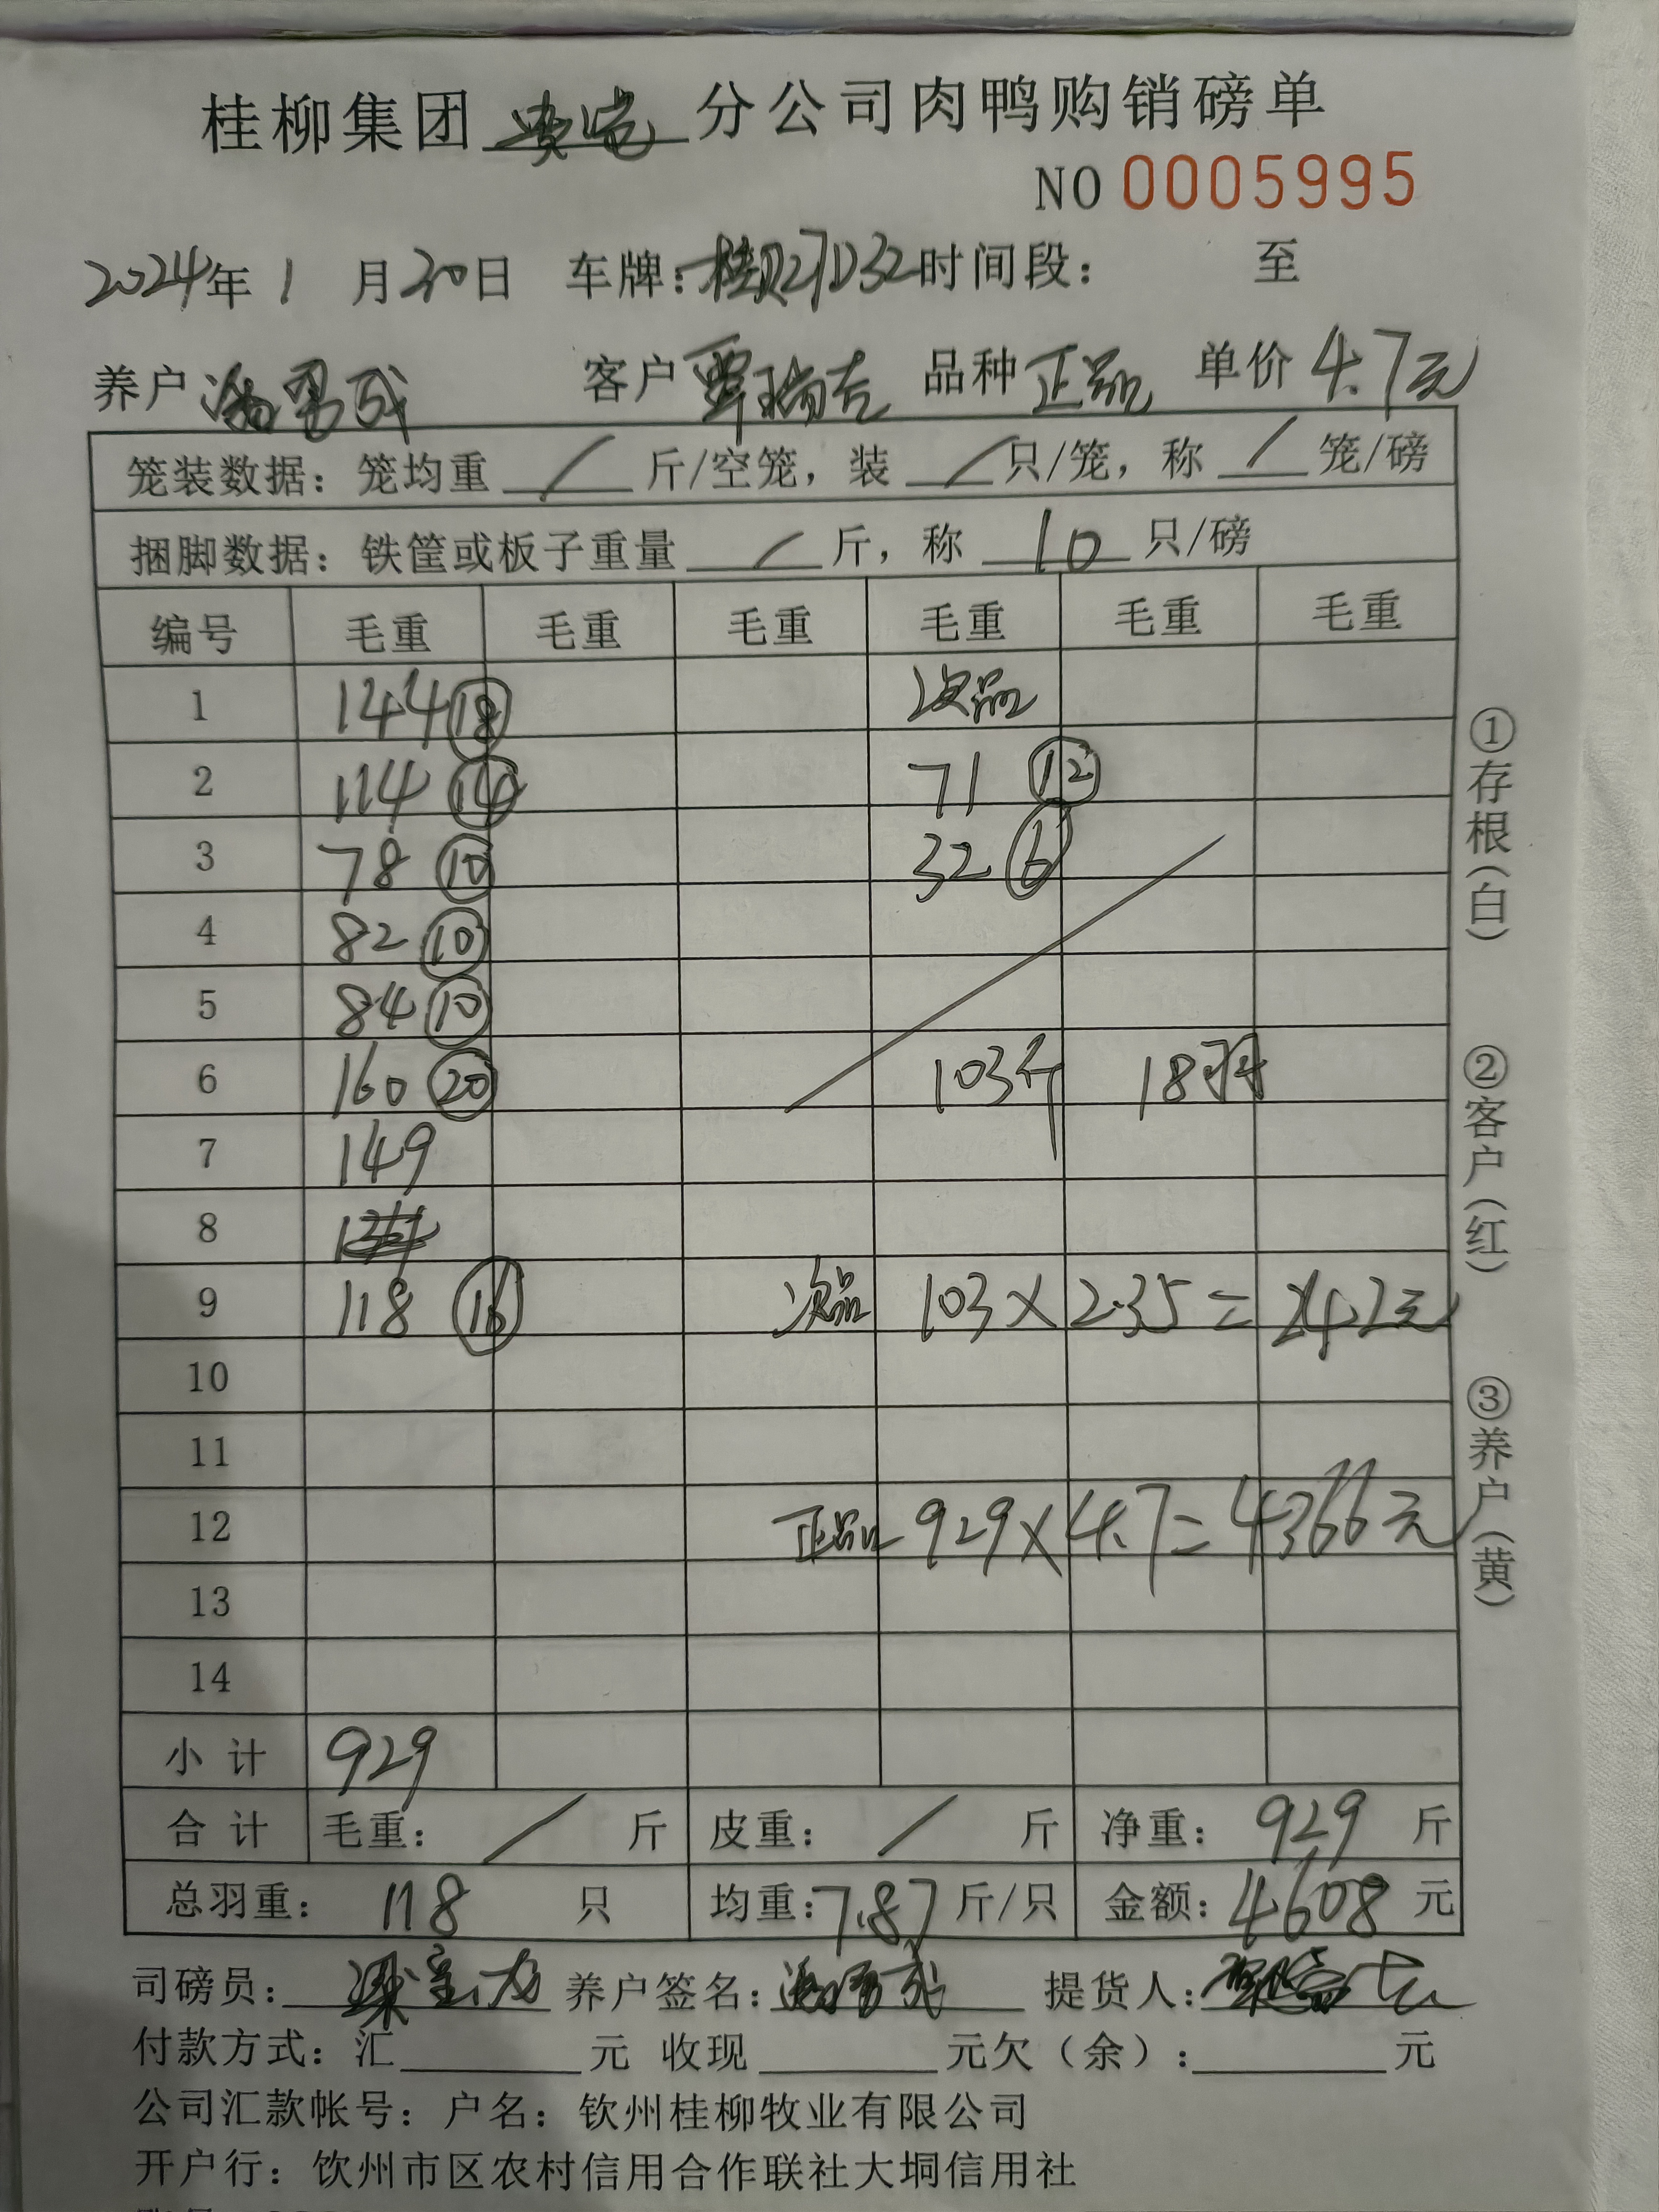 桂柳集团 分公司肉鸭购销磅单
NO 0005995
2024年 1 月 30日 车牌: 桂 时间段: 至
养户 客户 覃瑞 品种 正品 单价 4.7元
笼装数据: 笼均重 / 斤/空笼, 装 / 只/笼, 称 / 笼/磅
捆脚数据: 铁筐或板子重量 / 斤, 称 10 只/磅
编号 毛重 毛重 毛重 毛重 毛重 毛重
1 144 ⑱ 次品
2 114 ⑭ 71 ⑫
3 78 ⑩ 32 ⑥
4 82 ⑩
5 84 ⑩
6 160 ⑳ 103斤 18羽
7 149
8
9 118 ⑯ 次品 103×2.35=242元
10
11
12 正品 929×4.7=4366元
13
14
小计 929
合计 毛重: / 斤 皮重: / 斤 净重: 929 斤
总羽重: 118 只 均重: 7.87 斤/只 金额: 4608 元
司磅员: 养户签名: 提货人:
付款方式: 汇 元 收现 元欠(余): 元
公司汇款帐号: 户名: 钦州桂柳牧业有限公司
开户行: 饮州市区农村信用合作联社大垌信用社
①存根(白)
②客户(红)
③养户(黄)